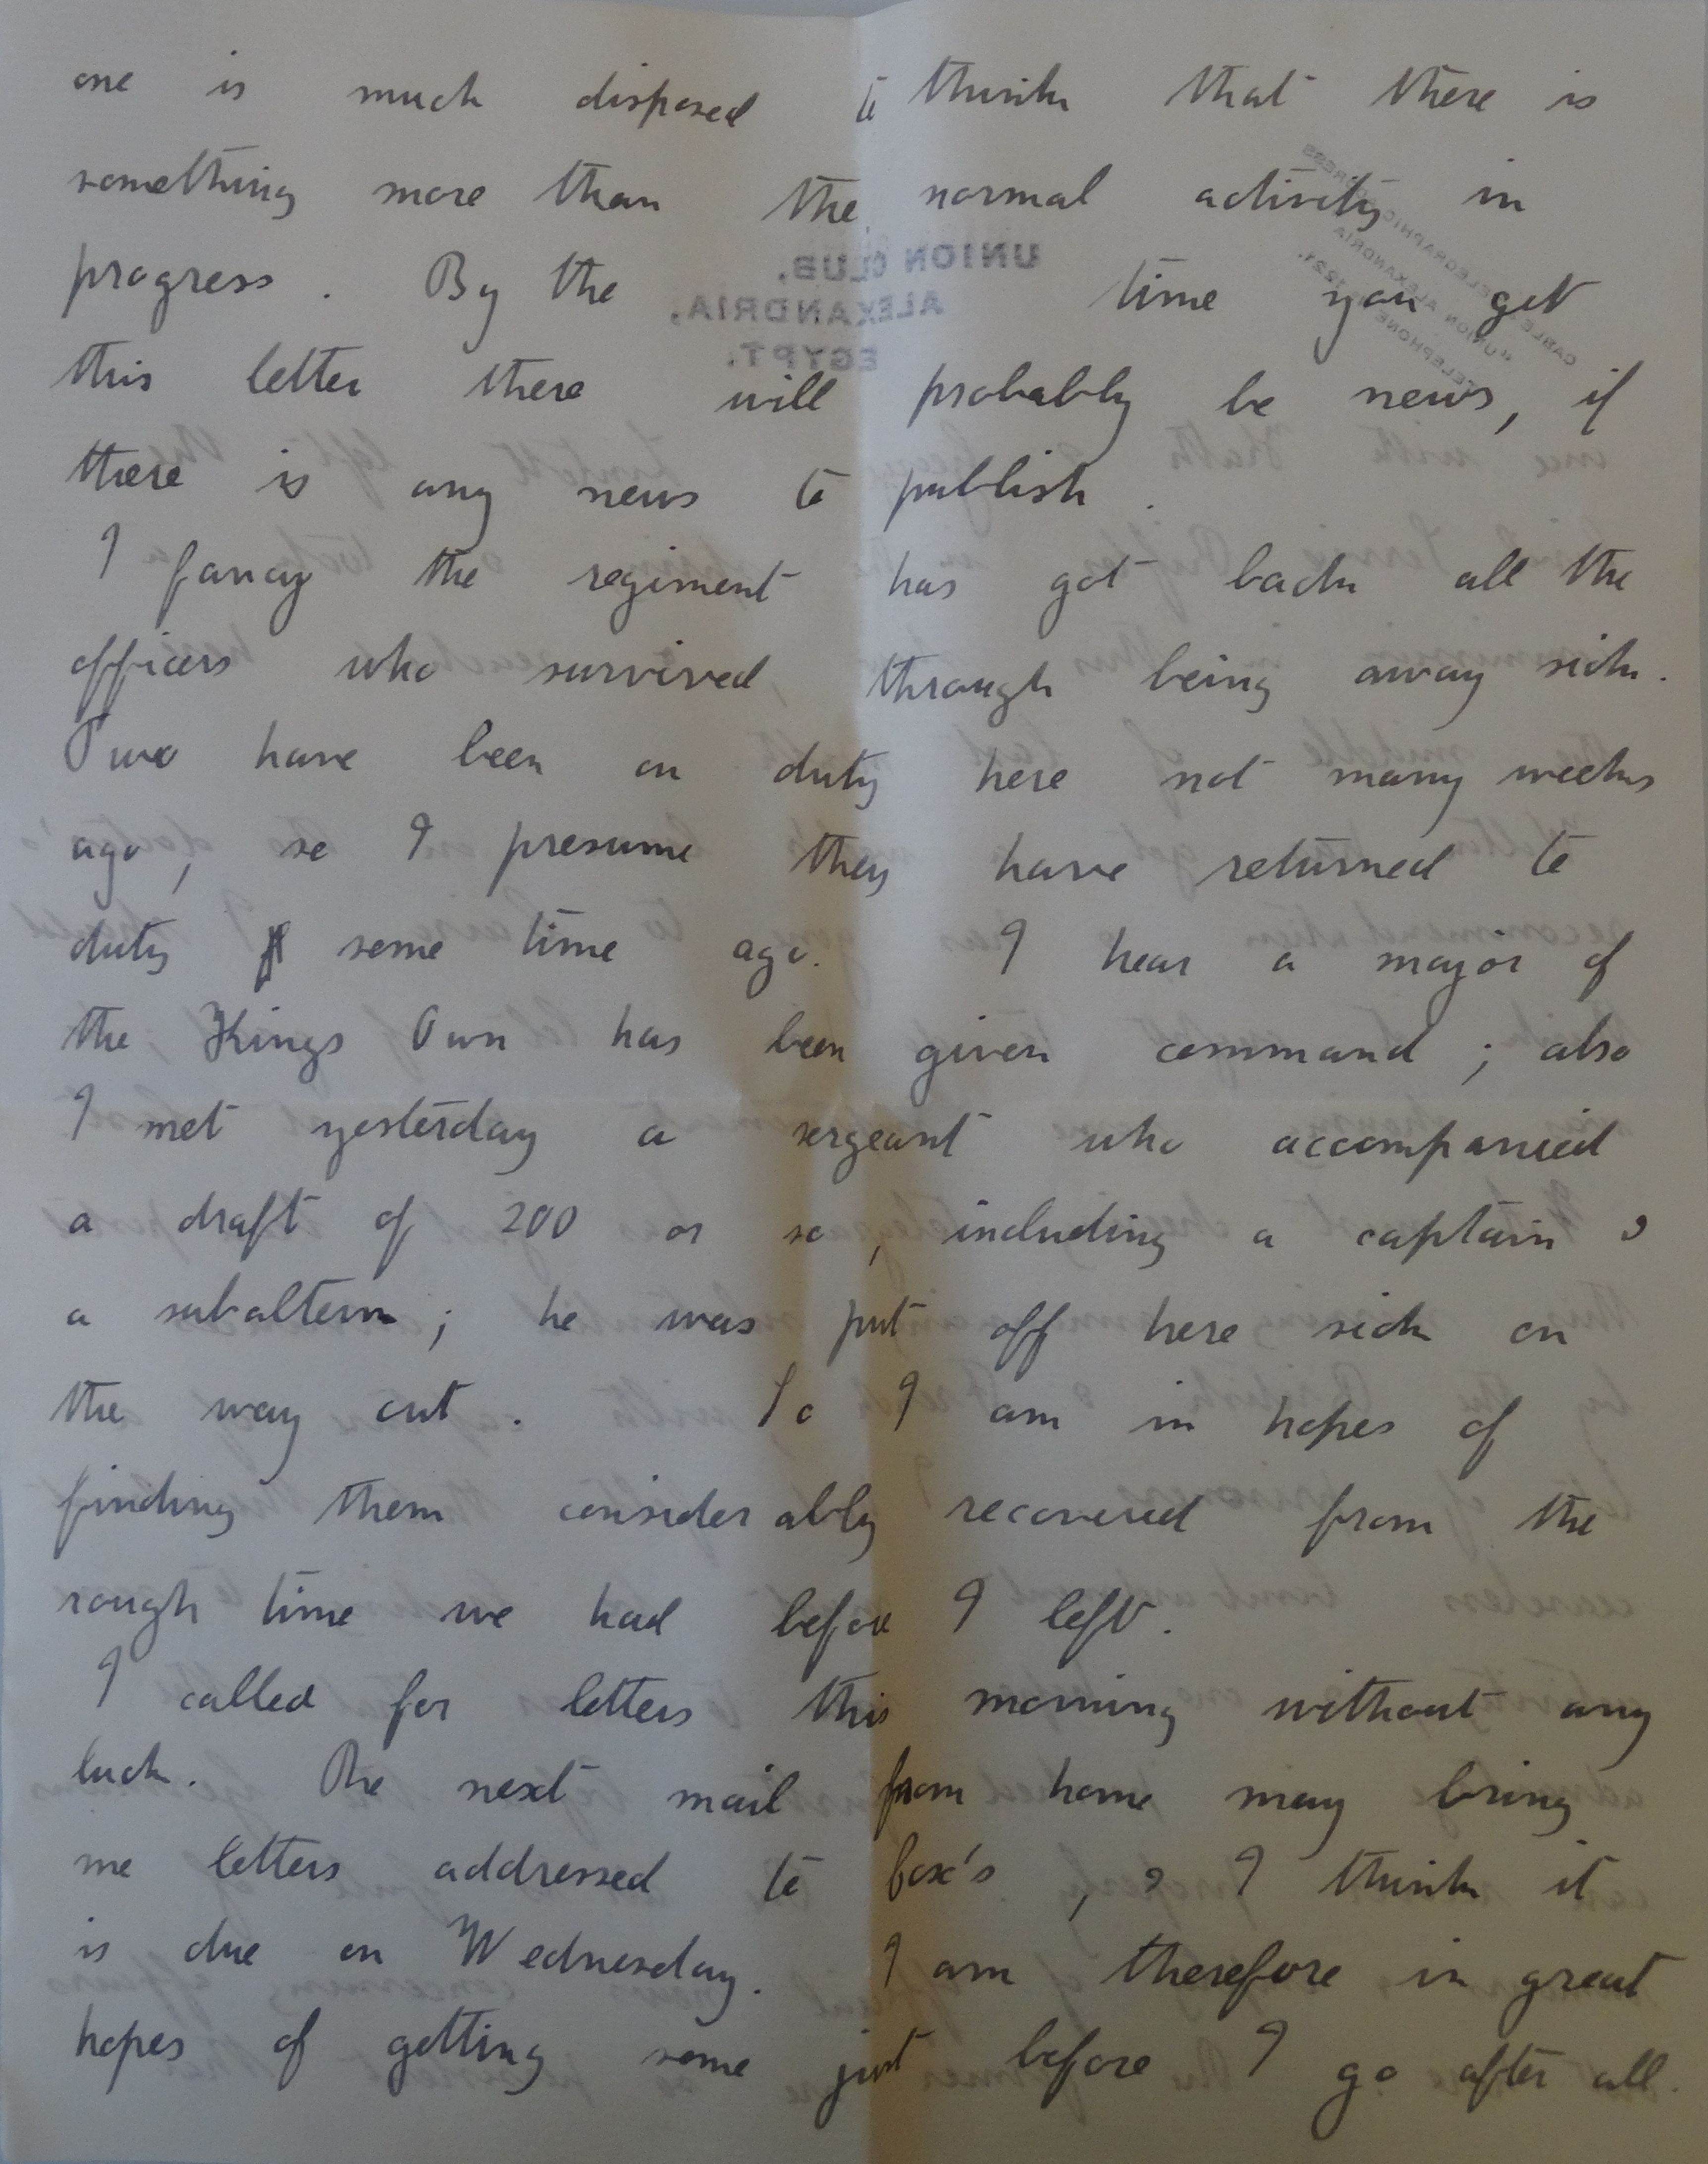 one is much disposed to think that there is
something more than the normal activity in
progress. By the time you get
this letter there will probably be news, if
there is any news to publish.
I fancy the regiment has got back all the
officers who survived, through being away sick.
Two have been on duty here not many weeks
ago, so I presume they have returned to
duty some time ago. I hear a major of
the Kings Own has been given command; also
I met yesterday a sergeant who accompanied
a draft of 200 or so, including a captain &
a subaltern; he was put off here sick on
the way out. So I am in hopes of
finding them considerably recovered from the
rough time we had before I left.
I called for letters this morning without any
luck. The next mail from home may bring
me letters addressed to Cox's, & I think it
is due on Wednesday. I am therefore in great
hopes of getting some just before I go after all.
UNION CLUB,
ALEXANDRIA,
EGYPT.